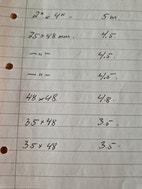 2" x 4" 5 m
25 x 48 mm. 4.5
—"— 4.5
—"— 4.5
48 x 48 4.8
35 x 48 3.5
35 x 48 3.5